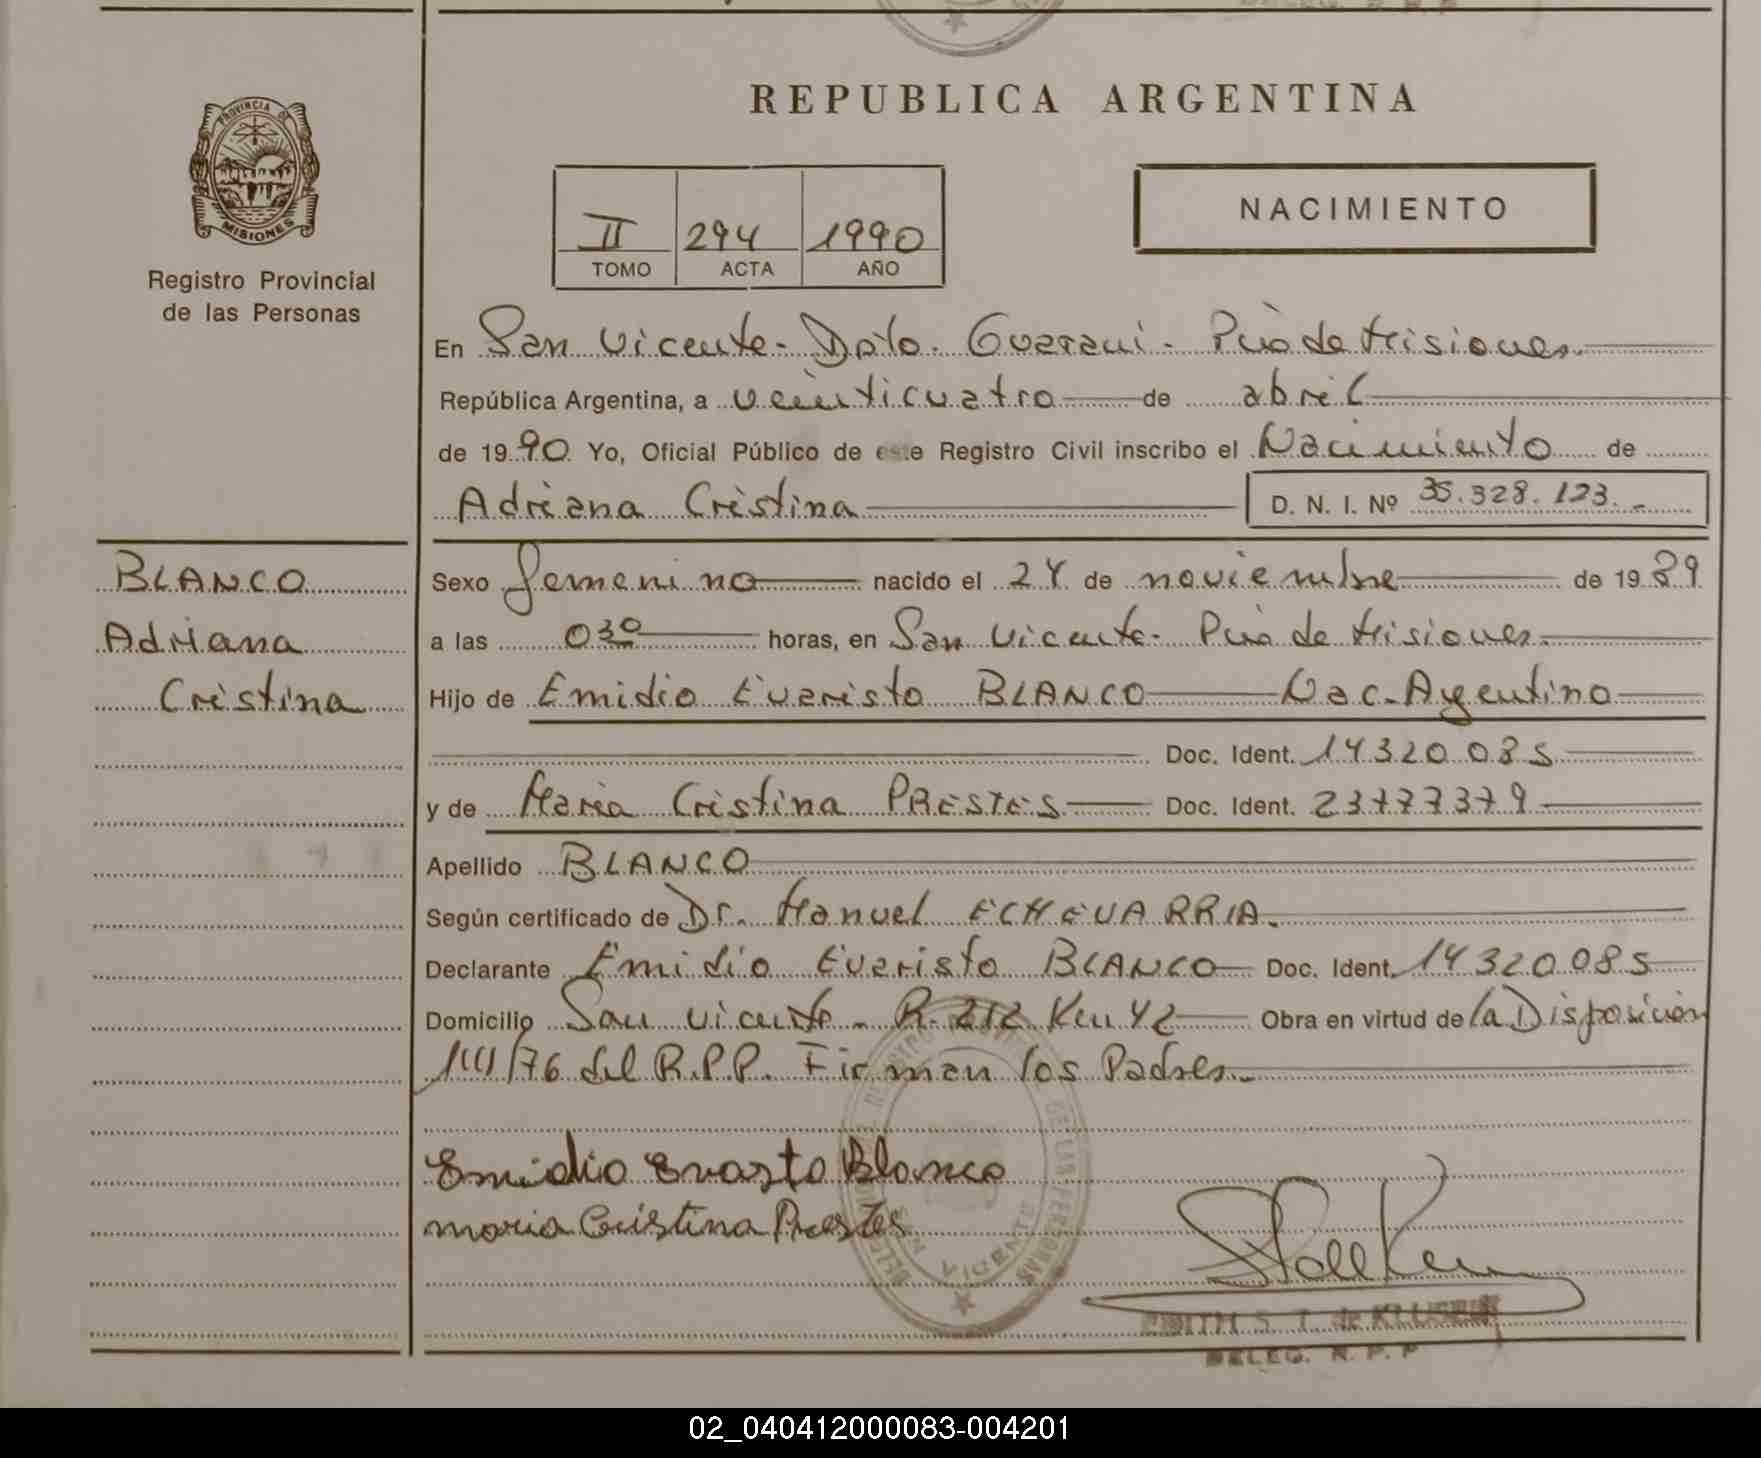 REPUBLICA ARGENTINA
PROVINCIA DE
MISIONES
Registro Provincial
de las Personas
II 294 1990
TOMO ACTA AÑO
NACIMIENTO
En San Vicente - Dpto. Guarani - Pcia de Misiones.
República Argentina, a veinticuatro de abril
de 1990 Yo, Oficial Público de este Registro Civil inscribo el Nacimiento de
Adriana Cristina D. N. I. Nº 35.328.123.-
BLANCO
Adriana
Cristina
Sexo femenino nacido el 24 de noviembre de 1989
a las 0³⁰ horas, en San Vicente - Pcia de Misiones.
Hijo de Emidio Evaristo BLANCO Nac. Argentino
Doc. Ident. 14320085
y de Maria Cristina PRESTES Doc. Ident. 23777379
Apellido BLANCO
Según certificado de Dr. Manuel ECHEVARRIA.
Declarante Emidio Evaristo BLANCO Doc. Ident. 14320085
Domicilio San Vicente - R. 212 Km 42 Obra en virtud de la Disposición
/76 del R.P.P. Firman los Padres.
Emidio Evasto Blanco
maria Cristina Prestes
DE LAS PERSONAS
VICENTE
DELEG. R. P. P.
02_040412000083-004201